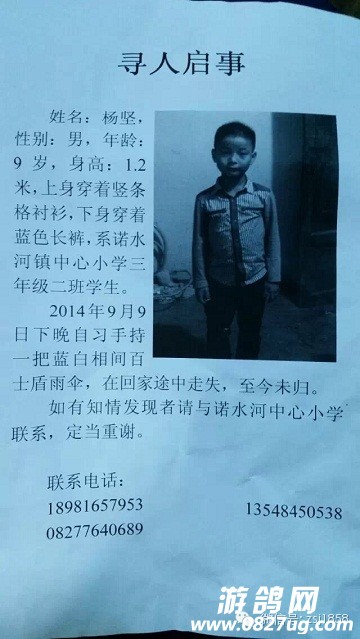 寻人启事
姓名：杨坚，
性别：男，年龄：
9 岁，身高：1.2
米，上身穿着竖条
格衬衫，下身穿着
蓝色长裤，系诺水
河镇中心小学三
年级二班学生。
2014年9月9
日下晚自习手持
一把蓝白相间百
士盾雨伞，在回家途中走失，至今未归。
如有知情发现者请与诺水河中心小学
联系，定当重谢。
联系电话：
18981657953 13548450538
08277640689
游鸽网
www.0827ug.com
zsl1858